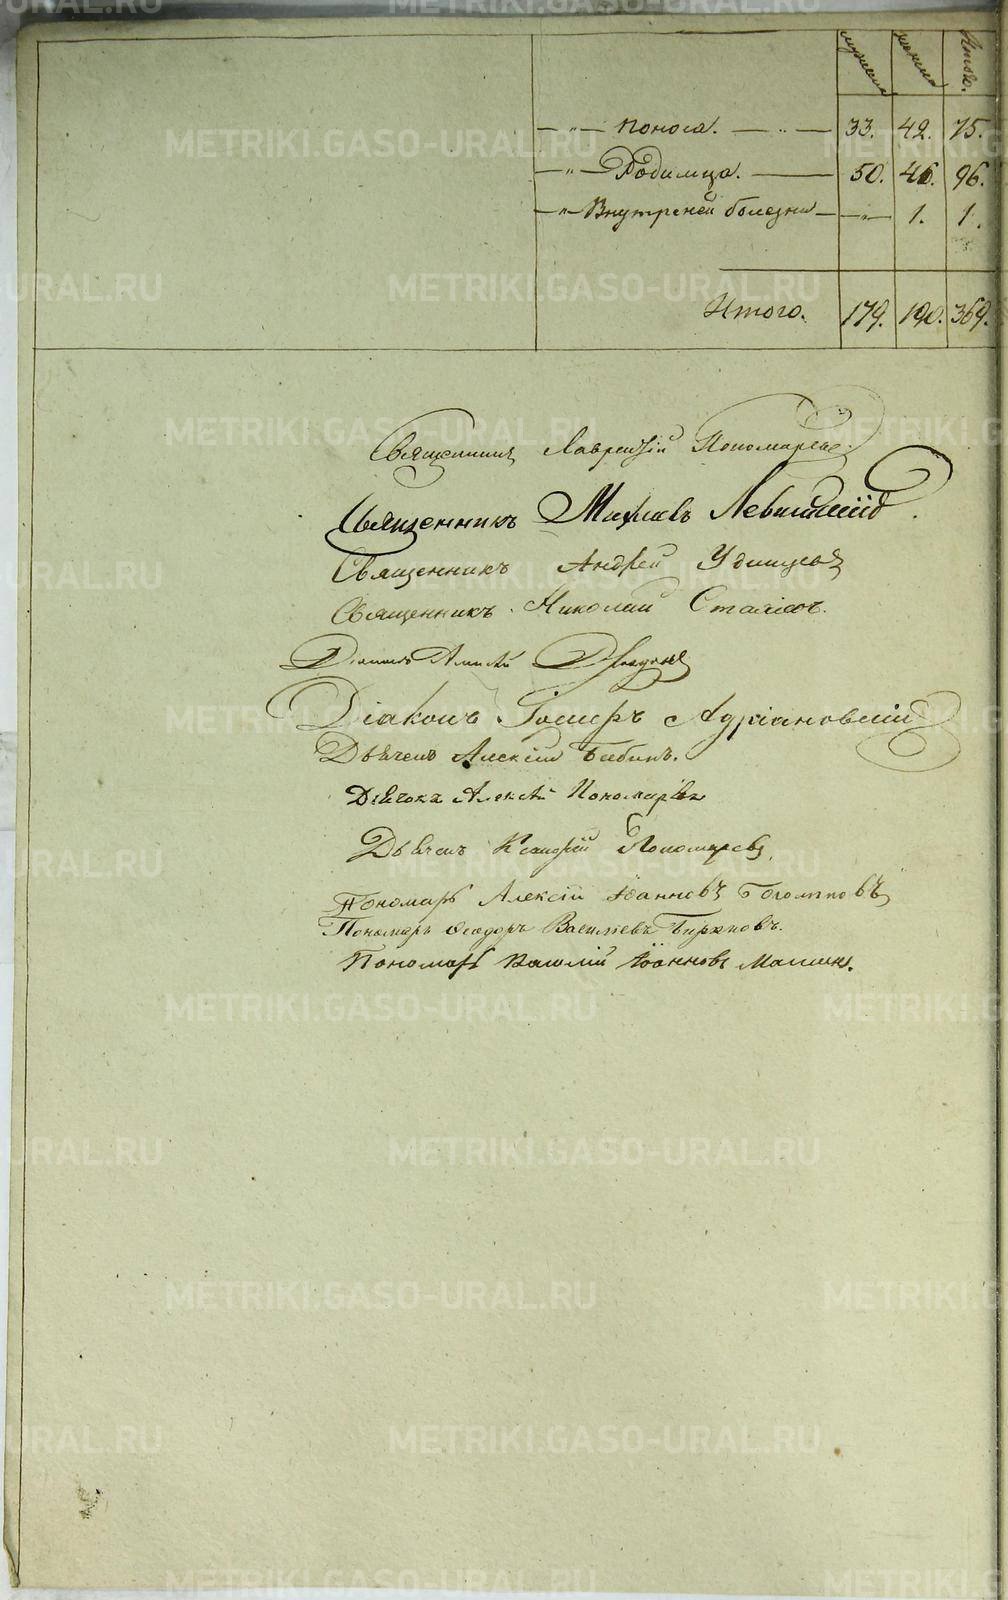 мужеска женска Итого.
— „ — Поноса. — „ — 33. 42. 75.
— „ — Родимца. — 50. 46. 96.
— „ — Внутреней болезни — „ — 1. 1.
Итого. 179. 190. 369.
Священникъ Лаврентій Пономаревъ.
Священникъ Михаилъ Левитскій.
Священникъ Андрей Удинцовъ
Священникъ Николай
Діаконъ Алексѣй
Діаконъ Іосифъ Адріановскій
Дьячекъ Алексій Бабинъ.
Дьячокъ Алексѣй Пономаревъ
Дьячекъ Пономаревъ
Пономарь Алексій Іоанновъ
Пономарь Ѳеодоръ Васильевъ Бирюковъ.
Пономарь Василій Іоанновъ
METRIKI.GASO-URAL.RU